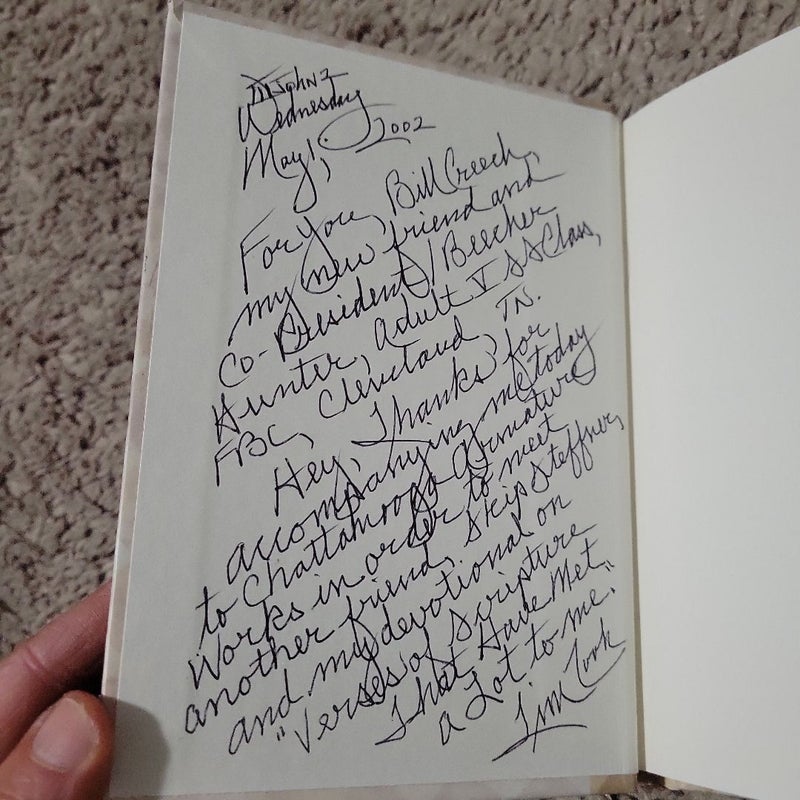 III John 2
Wednesday
May 1, 2002
For you, Bill Creech,
my new friend and
Co-President/Beecher
Hunter, Adult V SS Class,
FBC, Cleveland, TN.
Hey, Thanks for
accompanying me today
to Chattanooga Armature
Works in order to meet
another friend, Skip Steffner,
and my devotional on
"Verses of Scripture
That Have Met
a Lot to me."